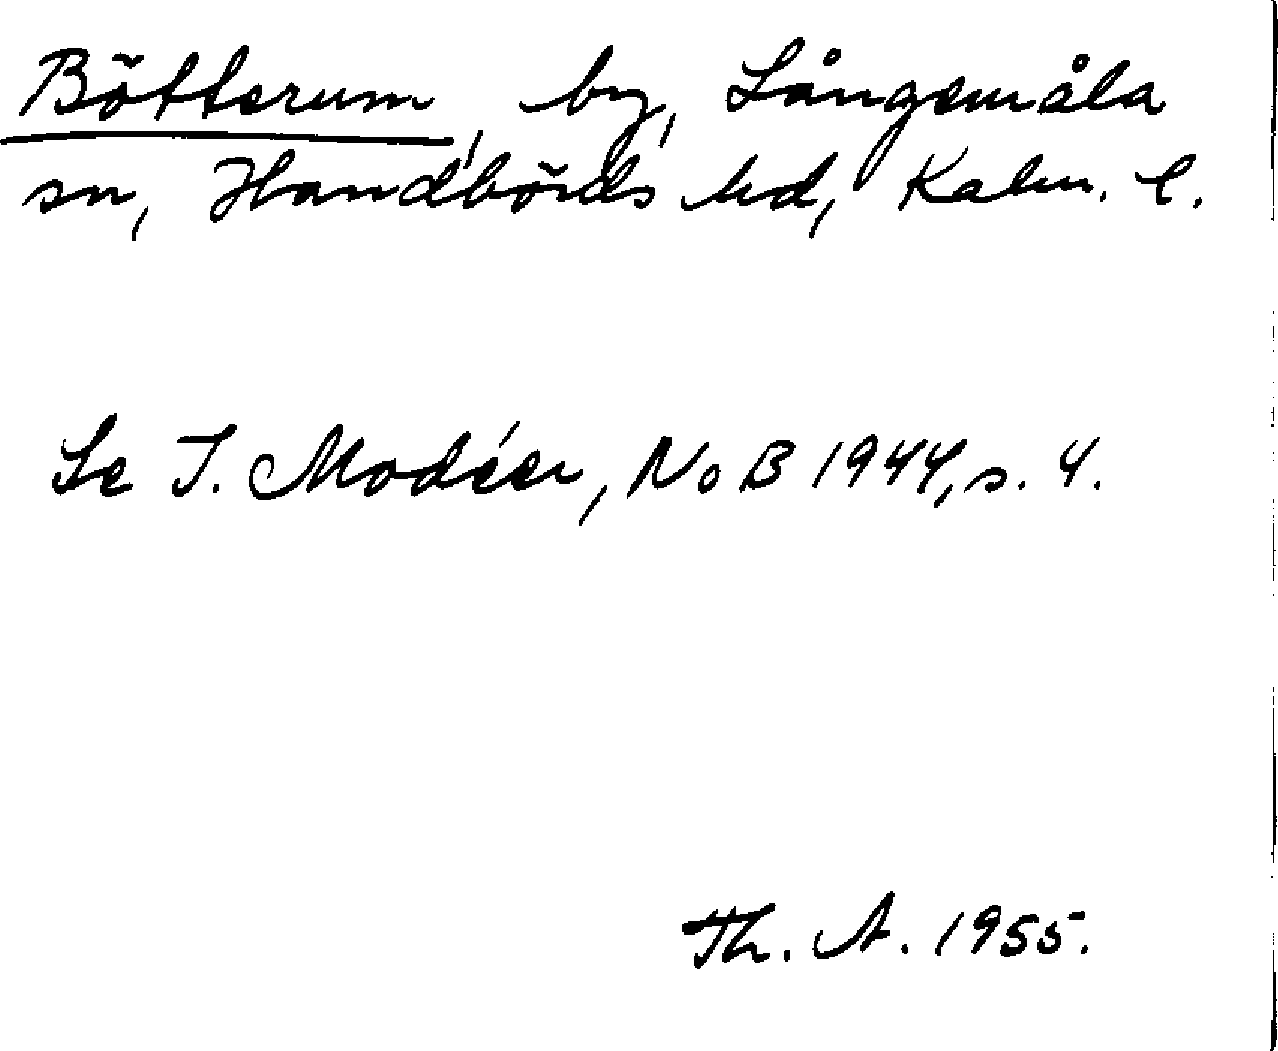 Bötterum, by, Långemåla
sn, Handbörds hd, Kalm. l.
Se I. Modéer, NoB 1944, s. 4.
Th. A. 1955.